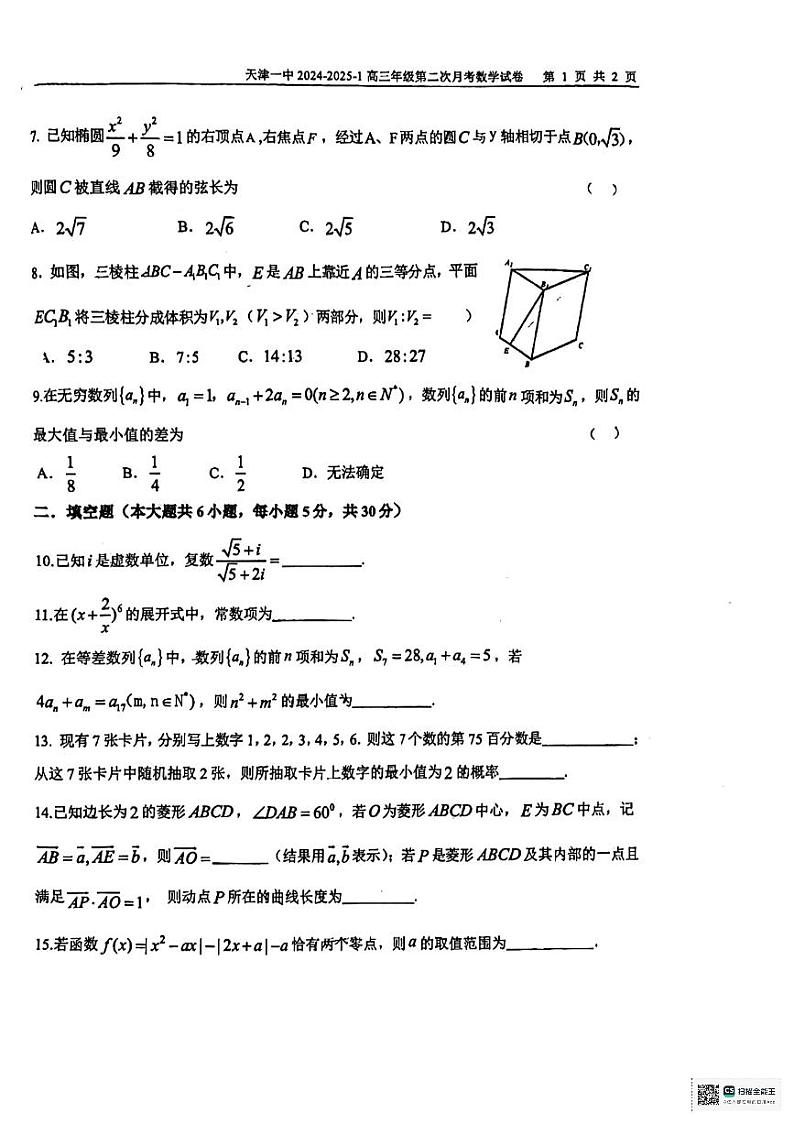 天津一中 2024-2025-1 高三年级第二次月考数学试卷 第 1 页 共 2 页
7. 已知椭圆 x²/9 + y²/8 = 1 的右顶点A,右焦点F，经过A、F两点的圆C与y轴相切于点B(0,√3)，
则圆C被直线AB截得的弦长为 （ ）
A. 2√7 B. 2√6 C. 2√5 D. 2√3
8. 如图，三棱柱ABC−A₁B₁C₁中，E是AB上靠近A的三等分点，平面
EC₁B₁将三棱柱分成体积为V₁,V₂（V₁>V₂）两部分，则V₁:V₂= ）
A. 5:3 B. 7:5 C. 14:13 D. 28:27
A₁ C₁ B₁ E B C
9.在无穷数列{aₙ}中，a₁=1，aₙ₋₁+2aₙ=0(n≥2,n∈N*)，数列{aₙ}的前n项和为Sₙ，则Sₙ的
最大值与最小值的差为 （ ）
A. 1/8 B. 1/4 C. 1/2 D. 无法确定
二．填空题（本大题共6小题，每小题5分，共30分）
10.已知i是虚数单位，复数 (√5+i)/(√5+2i) =________.
11.在(x+2/x)⁶的展开式中，常数项为________.
12. 在等差数列{aₙ}中，数列{aₙ}的前n项和为Sₙ，S₇=28,a₁+a₄=5，若
4aₙ+aₘ=a₁₇(m,n∈N*)，则n²+m²的最小值为________.
13. 现有7张卡片，分别写上数字1，2，2，3，4，5，6. 则这7个数的第75百分数是________；
从这7张卡片中随机抽取2张，则所抽取卡片上数字的最小值为2的概率________.
14.已知边长为2的菱形ABCD，∠DAB=60⁰，若O为菱形ABCD中心，E为BC中点，记
AB⃗=a⃗,AE⃗=b⃗，则AO⃗=______（结果用a⃗,b⃗表示）；若P是菱形ABCD及其内部的一点且
满足AP⃗·AO⃗=1， 则动点P所在的曲线长度为________.
15.若函数f(x)=|x²−ax|−|2x+a|−a恰有两个零点，则a的取值范围为________.
CS 扫描全能王